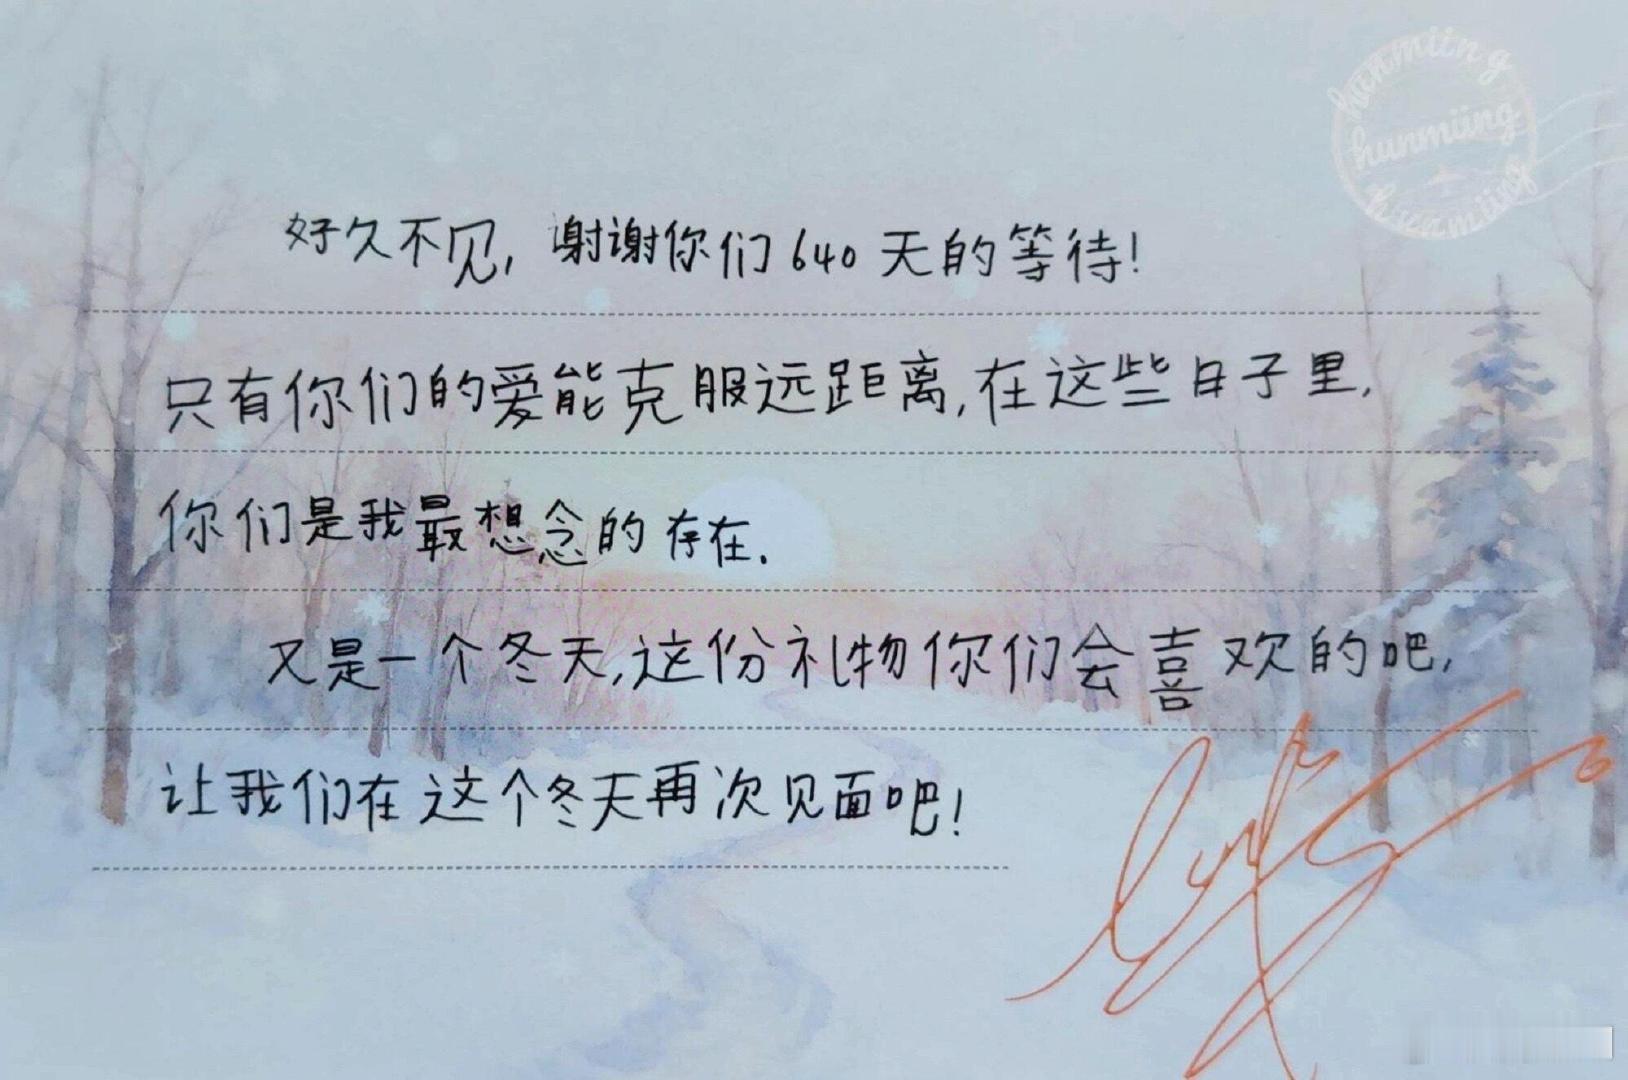 hanmiing
hunmiing
huanmiing
好久不见，谢谢你们640天的等待！
只有你们的爱能克服远距离，在这些日子里，
你们是我最想念的存在．
又是一个冬天，这份礼物你们会喜欢的吧，
让我们在这个冬天再次见面吧！